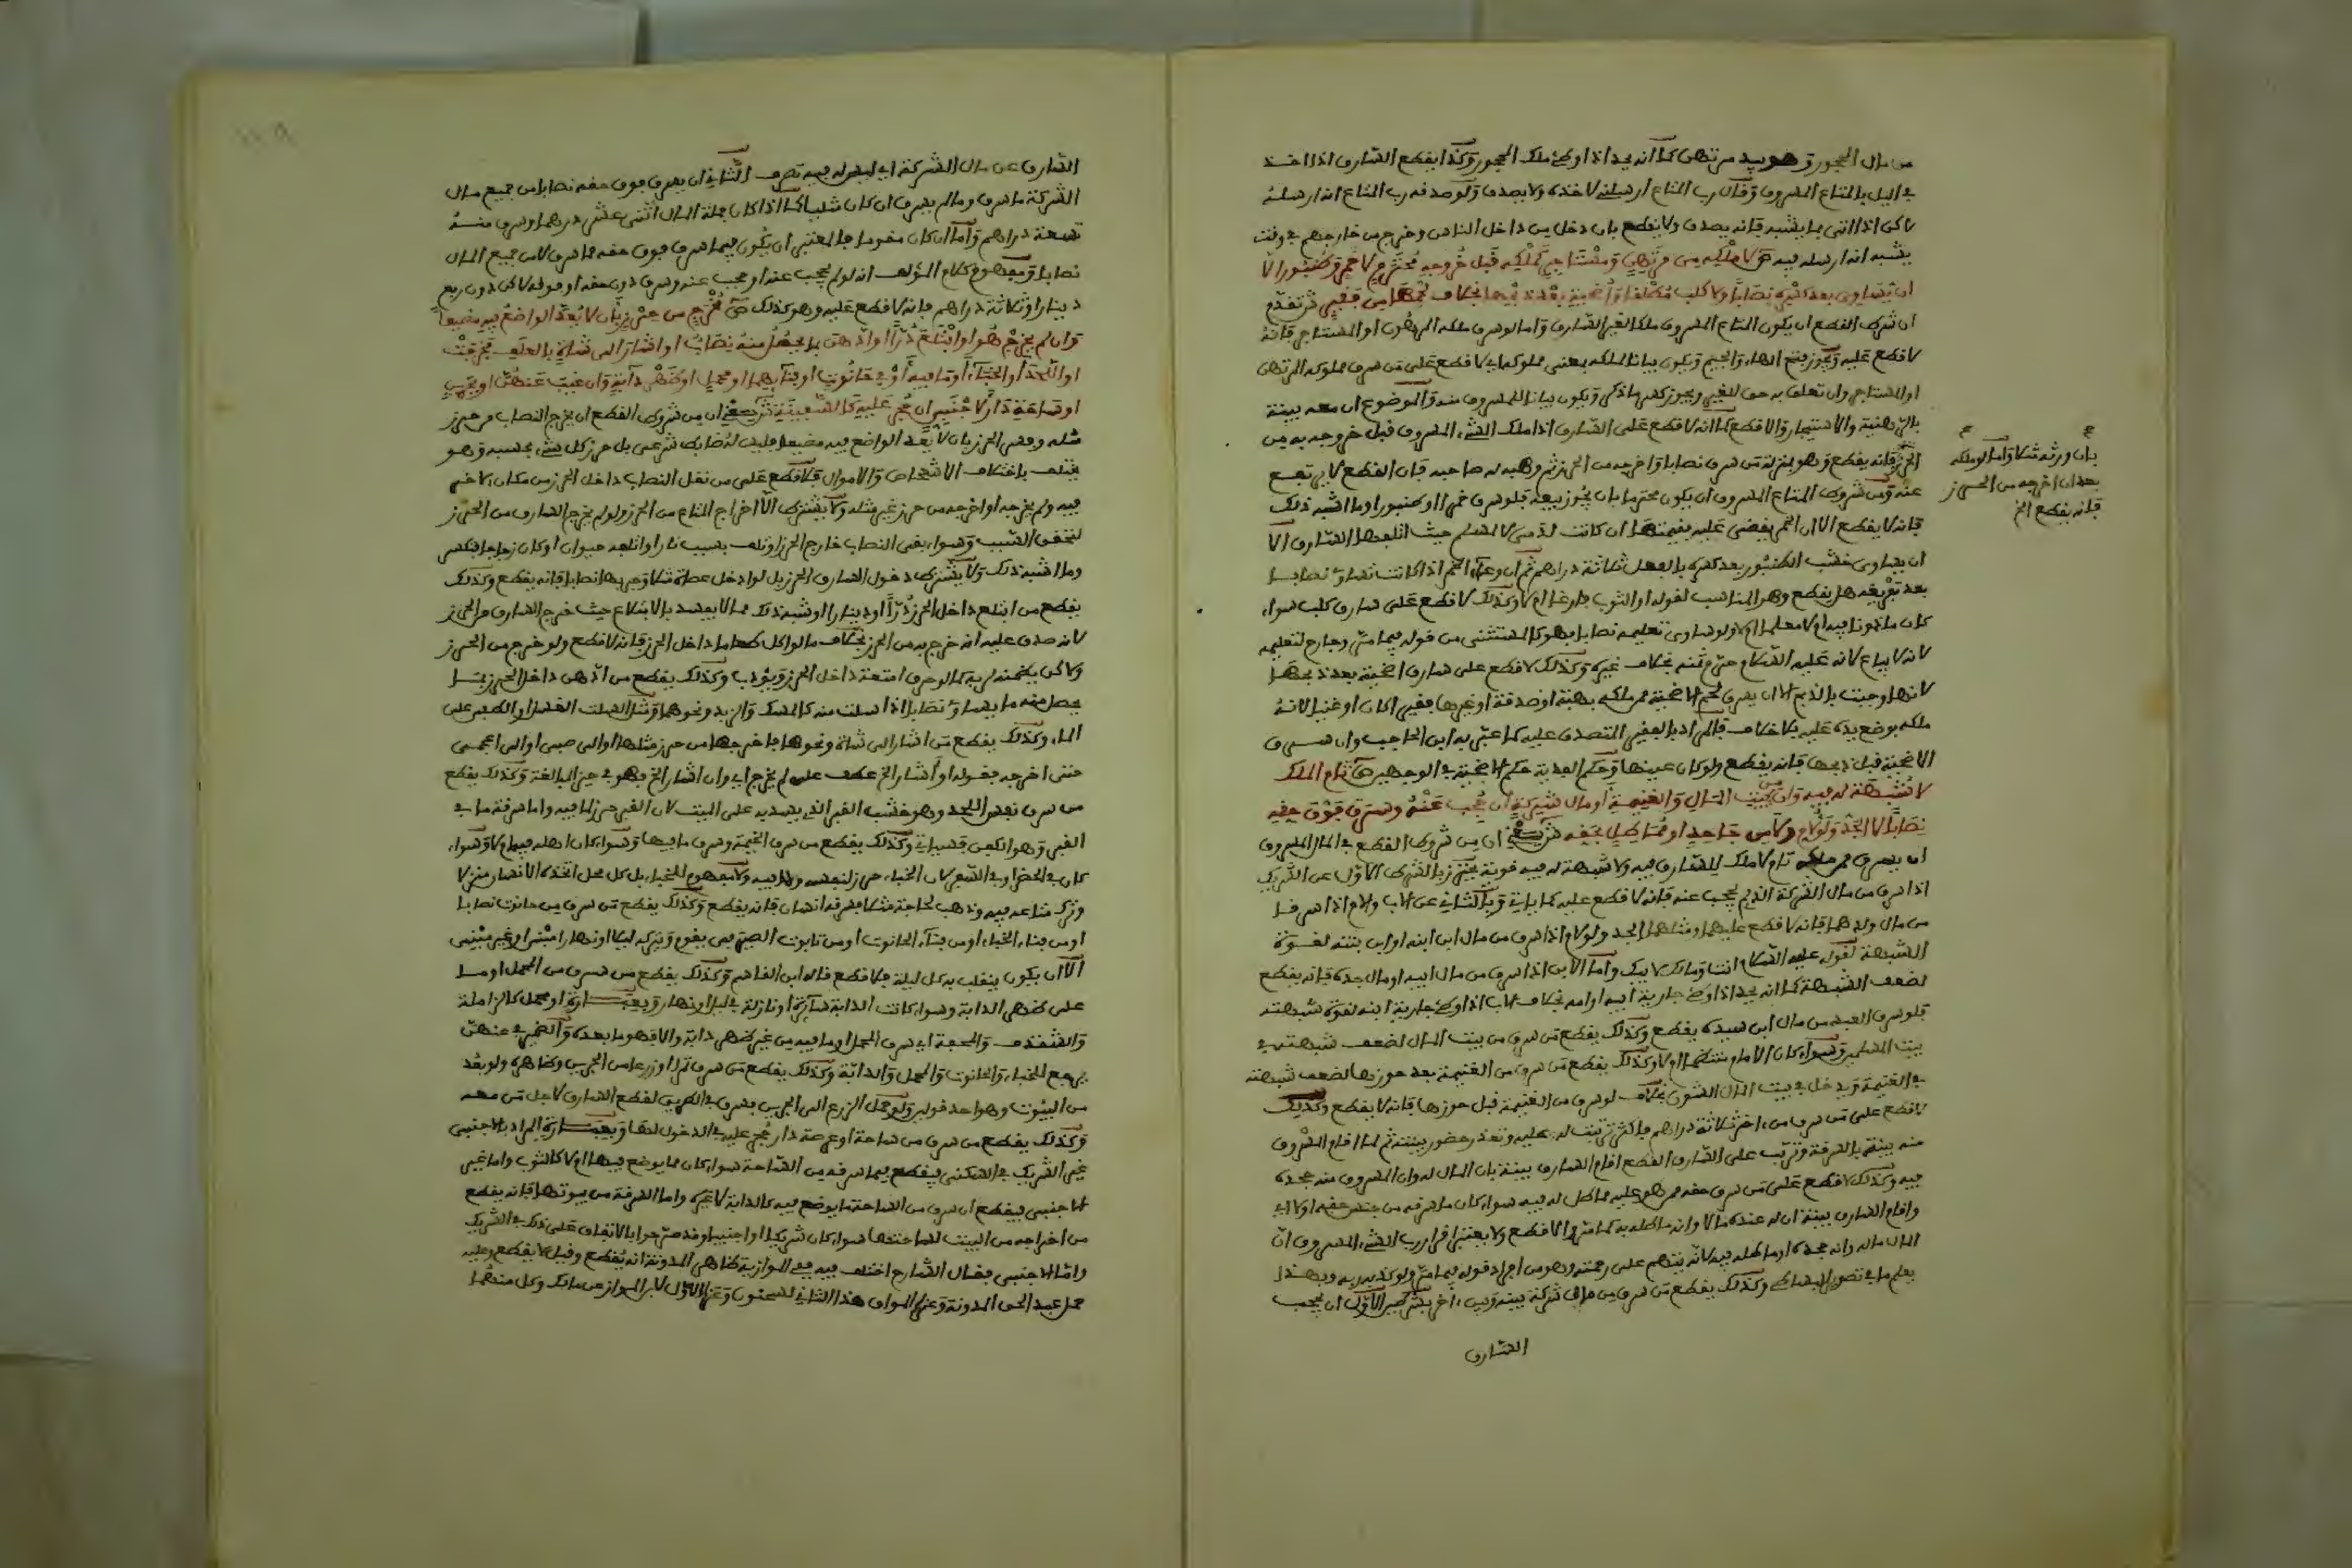 من مال المحجور وهو بيد مرتهن كما انه يحد اذا وطئ ملك المحجور وكذا يقطع السارق اذا اخذ
في اليل بالمتاع المسروق وقال رب المتاع ارسلني لاخذه ولا يصدق ولو صدقه رب المتاع انه ارسله
لاكن اذا اتى بما يشبه فانه يصدق ولا يقطع بان دخل من داخل الناس وخرج من خارجهم في وقت
يشبه انه ارسله فيه ص لا ملكه من مرتهن ومستاجر كملكه قبل خروجه محترم لا خمر وطنبور الا
ان يساوي بعد كسره نصابا ولا كلب مطلقا واضحية بعد ذبحها بخلاف لحمها من فقير ش تقدم
ان شرط القطع ان يكون المتاع المسروق ملكا لغير السارق واما لو سرق ملكه المرهون او المستاجر فانه
لا قطع عليه ويجوز بفتح الهاء والجيم ويكون بيانا لملكه بمعنى مملوكه اي لا قطع على من سرق مملوكه المرتهن
او المستاجر وان تعلق به حق للغير ويجوز كسر ما ذكر ويكون بيانا للمسروق منه والموضوع ان معه بينة
بالرهنية والاستيجار والا قطع كما انه لا قطع على السارق اذا ملك الشيء المسروق قبل خروجه به من
الحرز فانه يقطع وهو بمنزلة من سرق نصابا واخرجه من الحرز ثم وهبه له صاحبه فان القطع لا يرتفع
بان ورثه مثلا واما لو ملكه
بعد ان اخرجه من الحرز
فانه يقطع الخ
عنه ومن شروط المتاع المسروق ان يكون محترما بان يجوز بيعه فلو سرق خمرا او طنبورا وما اشبه ذلك
فانه لا يقطع الا ان الخمر يقضى عليه بقيمتها ان كانت لذمي لا لمسلم حيث اتلفها السارق الا
ان يساوي خشب الطنبور بعد كسره بالفعل ثلاثة دراهم ثم ان وعاء الخمر اذا كانت تساوي نصابا
بعد تفريغه هل يقطع وهو المناسب لقوله او الثوب فارغا ام لا وكذلك لا قطع على سارق كلب سواء
كان ماذونا فيه ام لا معلما ام لا ولو ساوى تعليمه نصابا فهو كالمستثنى من قوله فيما مر وجارح لتعليمه
لانه لا يباع لانه عليه السلام حرم ثمنه بخلاف غيره وكذلك لا قطع على سارق اضحية بعد ذبحها
لانها وجبت بالذبح الا ان يسرق لحم الاضحية ممن ملكه بهبة او صدقة او غيرها فقيرا كان او غنيا لانه
ملكه بوضع يده عليه بلا خلاف فالمراد بالفقير المتصدق عليه كما عبر به ابن الحاجب وان سرق
الاضحية قبل ذبحها فانه يقطع ولو كان عينها وحكم الهدية حكم الاضحية في الوجهين ص تام الملك
لا شبهة له فيه وان من بيت المال والغنيمة او مال شركة ان حجب عنه وسرق فوق حقه
نصابا لا الجد ولو لام ولا من جاحد او مماطل لحقه ش يعني ان من شروط القطع في المال المسروق
ان يسرق من ملك تام لا ملك للسارق فيه ولا شبهة له فيه قوية يحترز بالشرط الاول عن الشريك
اذا سرق من مال الشركة الذي لم يحجب عنه فانه لا قطع عليه كما ياتي وبالثاني عن الاب والام اذا سرقا
من مال ولدهما فانه لا قطع عليهما ومثلهما الجد ولو لام اذا سرق من مال ابن ابنه او ابن بنته لقوة
الشبهة لقوله عليه السلام انت ومالك لابيك واما الابن اذا سرق من مال ابيه او مال جده فانه يقطع
لضعف الشبهة كما انه يحد اذا وطئ جارية ابيه او امه بخلاف الاب اذا وطئ جارية ابنه لقوة شبهته
فلو سرق العبد من مال ابن سيده يقطع وكذلك يقطع من سرق من بيت المال لضعف شبهته في
بيت المسلمين وسواء كان الامام منتظما ام لا وكذلك يقطع من سرق من الغنيمة بعد حوزها لضعف شبهته
في الغنيمة ويدخل في بيت المال الشون بخلاف لو سرق من الغنيمة قبل حوزها فانه لا يقطع وكذلك
لا قطع على من سرق من اخر ثلاثة دراهم فاكثر ثبت له عليه وتعذر حضور بينته ثم لما اقام المسروق
منه بينة بالسرقة وترتب على السارق القطع اقام السارق بينة بان المال له وان المسروق منه جحده
فيه وكذلك لا قطع على من سرق حقه ممن هو عليه مماطل له فيه سواء كان ما سرقه من جنس حقه او لا اي
واقام السارق بينة ان له عنده مالا وانه ماطله به كما مر والا قطع ولا يعتبر اقرار رب الشيء المسروق ان
المال ماله وانه جحده او ماطله فيه لانه يتهم على رحمته وهو من افراد قوله فيما مر ولو كذبه ربه وبهذا
يعلم ما في تصوير البساطي وكذلك يقطع من سرق من مال شركة بينه وبين اخر بشرطين الاول ان يحجب
السارق
السارق عن مال الشركة اي ليس له فيه تصرف الثاني ان يسرق فوق حقه نصابا من جميع مال
الشركة ما سرق وما لم يسرق ان كان مثليا كما اذا كان جملة المال اثنى عشر درهما وسرق منه
تسعة دراهم واما ان كان مقوما فالمعتبر ان يكون فيما سرق فوق حقه مما سرق لا من جميع المال
نصابا ومفهوم كلام المؤلف انه لو لم يحجب عنه او حجب عنه وسرق دون حقه او فوقه لاكن دون ربع
دينار او ثلاثة دراهم فانه لا قطع عليه وهو كذلك ص مخرج من حرز بان لا يعد الواضع فيه مضيعا
وان لم يخرج هو او ابتلع درا او ادهن بما يحصل منه نصاب او اشار الى شاة بالعلف فخرجت
او اللحد او الخباء او ما فيه او في حانوت او فنائهما او محمل او ظهر دابة وان غيب عنهن او بجرين
او ساحة دار لاجنبي ان حجر عليه كالسفينة ش يعني ان من شروط القطع ان يخرج النصاب من حرز
مثله وفسر الحرز بان لا يعد الواضع فيه مضيعا فليس له ضابط شرعي بل حرز كل شيء بحسبه وهو
يختلف باختلاف الاشخاص والاموال فلا قطع على من نقل النصاب داخل الحرز من مكان لاخر
فيه ولم يخرجه او اخرجه من حرز غير مثله ولا يشترط الا اخراج المتاع من الحرز ولو لم يخرج السارق من الحرز
لتحقق السبب وسواء بقي النصاب خارج الحرز او تلف بسبب نار او اتلفه حيوان او كان زجاجا فكسر
وما اشبه ذلك ولا يشترط دخول السارق الحرز بل لو ادخل عصاة مثلا وجر بها نصابا فانه يقطع وكذلك
يقطع من ابتلع داخل الحرز درا او دينارا او شبه ذلك مما لا يفسد بالابتلاع حيث خرج السارق من الحرز
لانه صدق عليه انه خرج به من الحرز بخلاف ما لو اكل طعاما داخل الحرز فانه لا قطع ولو خرج من الحرز
ولاكن يضمنه لربه كما لو حرق امتعة داخل الحرز ويؤدب وكذلك يقطع من ادهن داخل الحرز بما
يحصل منه ما يساوي نصابا اذا سلت منه كالمسك والزبد ونحوهما ومثل السلت الغسل او الطفي على
الماء وكذلك يقطع من اشار الى شاة ونحوها فاخرجها من حرز مثلها او الى صبي او الى اعجمي
حتى اخرجه فقوله او اشار الخ عطف على لم يخرج اي وان اشار الخ فهو في حيز المبالغة وكذلك يقطع
من سرق نفس اللحد وهو خشب القبر الذي يسد به على الميت لان القبر حرز لما فيه واما سرقة ما في
القبر وهو الكفن فسياتي وكذلك يقطع من سرق الخيمة وسرق ما فيها وسواء كان اهله فيها ام لا وسواء
كان في الحضر او في السفر لان الخباء حرز لنفسه ولما فيه ولا مفهوم للخباء بل كل محل اتخذه الانسان منزلا
وترك متاعه فيه وذهب لحاجة مثلا فسرقه انسان فانه يقطع وكذلك يقطع من سرق من حانوت نصابا
او من فناء الخباء او من فناء الحانوت او من تابوت الصيرفي يقوم ويتركه ليلا او نهارا مبنيا او غير مبني
الا ان يكون ينقلب به كل ليلة فلا قطع قاله ابن القاسم وكذلك يقطع من سرق من المحمل او ما
على ظهر الدابة وسواء كانت الدابة سائرة او نازلة في ليل او نهار وبعبارة او محمل كالزاملة
والشقذف والمحفة اي سرق المحمل او ما فيه من غير ظهر دابة والا فهو ما بعده والضمير في عنهن
يرجع للخباء والحانوت والمحمل والدابة وكذلك يقطع من سرق تمرا او زرعا من الجرين وظاهره ولو بعد
من البيوت وهو احد قولين ولو حمل الزرع الى الجرين فسرق في الطريق لقطع السارق لاجل من معه
وكذلك يقطع من سرق من ساحة او عرصة دار حجر عليه في الدخول لها وبعبارة المراد بالاجنبي
غير الشريك في السكنى فيقطع فيما سرقه من الساحة سواء كان مما يوضع فيها ام لا كالثوب واما غير
الاجنبي فيقطع ان سرق من الساحة ما يوضع فيه كالدابة لا غيره واما السرقة من بيوتها فانه يقطع
من اخراجه من البيت لساحتها سواء كان شريكا او اجنبيا وقد صرحوا بالاتفاق على ذلك في الشريك
واما الاجنبي فقال الشارح اختلف فيه ففي الموازية ظاهر المدونة انه يقطع وقيل لا يقطع وعليه
حمل عبد الحق المدونة وعزا المواق هذا الثاني لسحنون وعزا الاول لابن المواز عن مالك وكل منهما